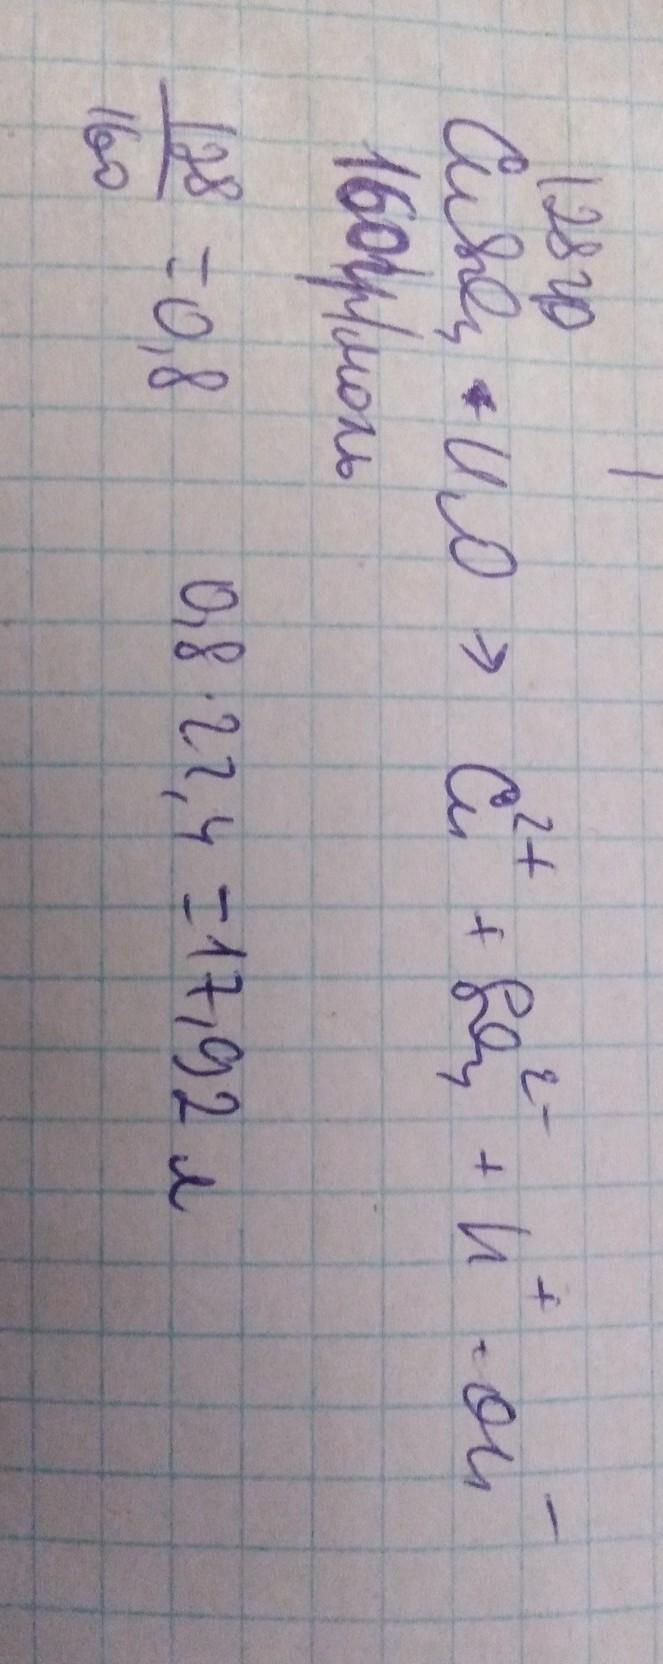 128 гр
CuSO₄ + H₂O → Cu²⁺ + SO₄²⁻ + H⁺ - OH⁻
160 гр/моль
128/160 = 0,8   0,8 · 22,4 = 17,92 л